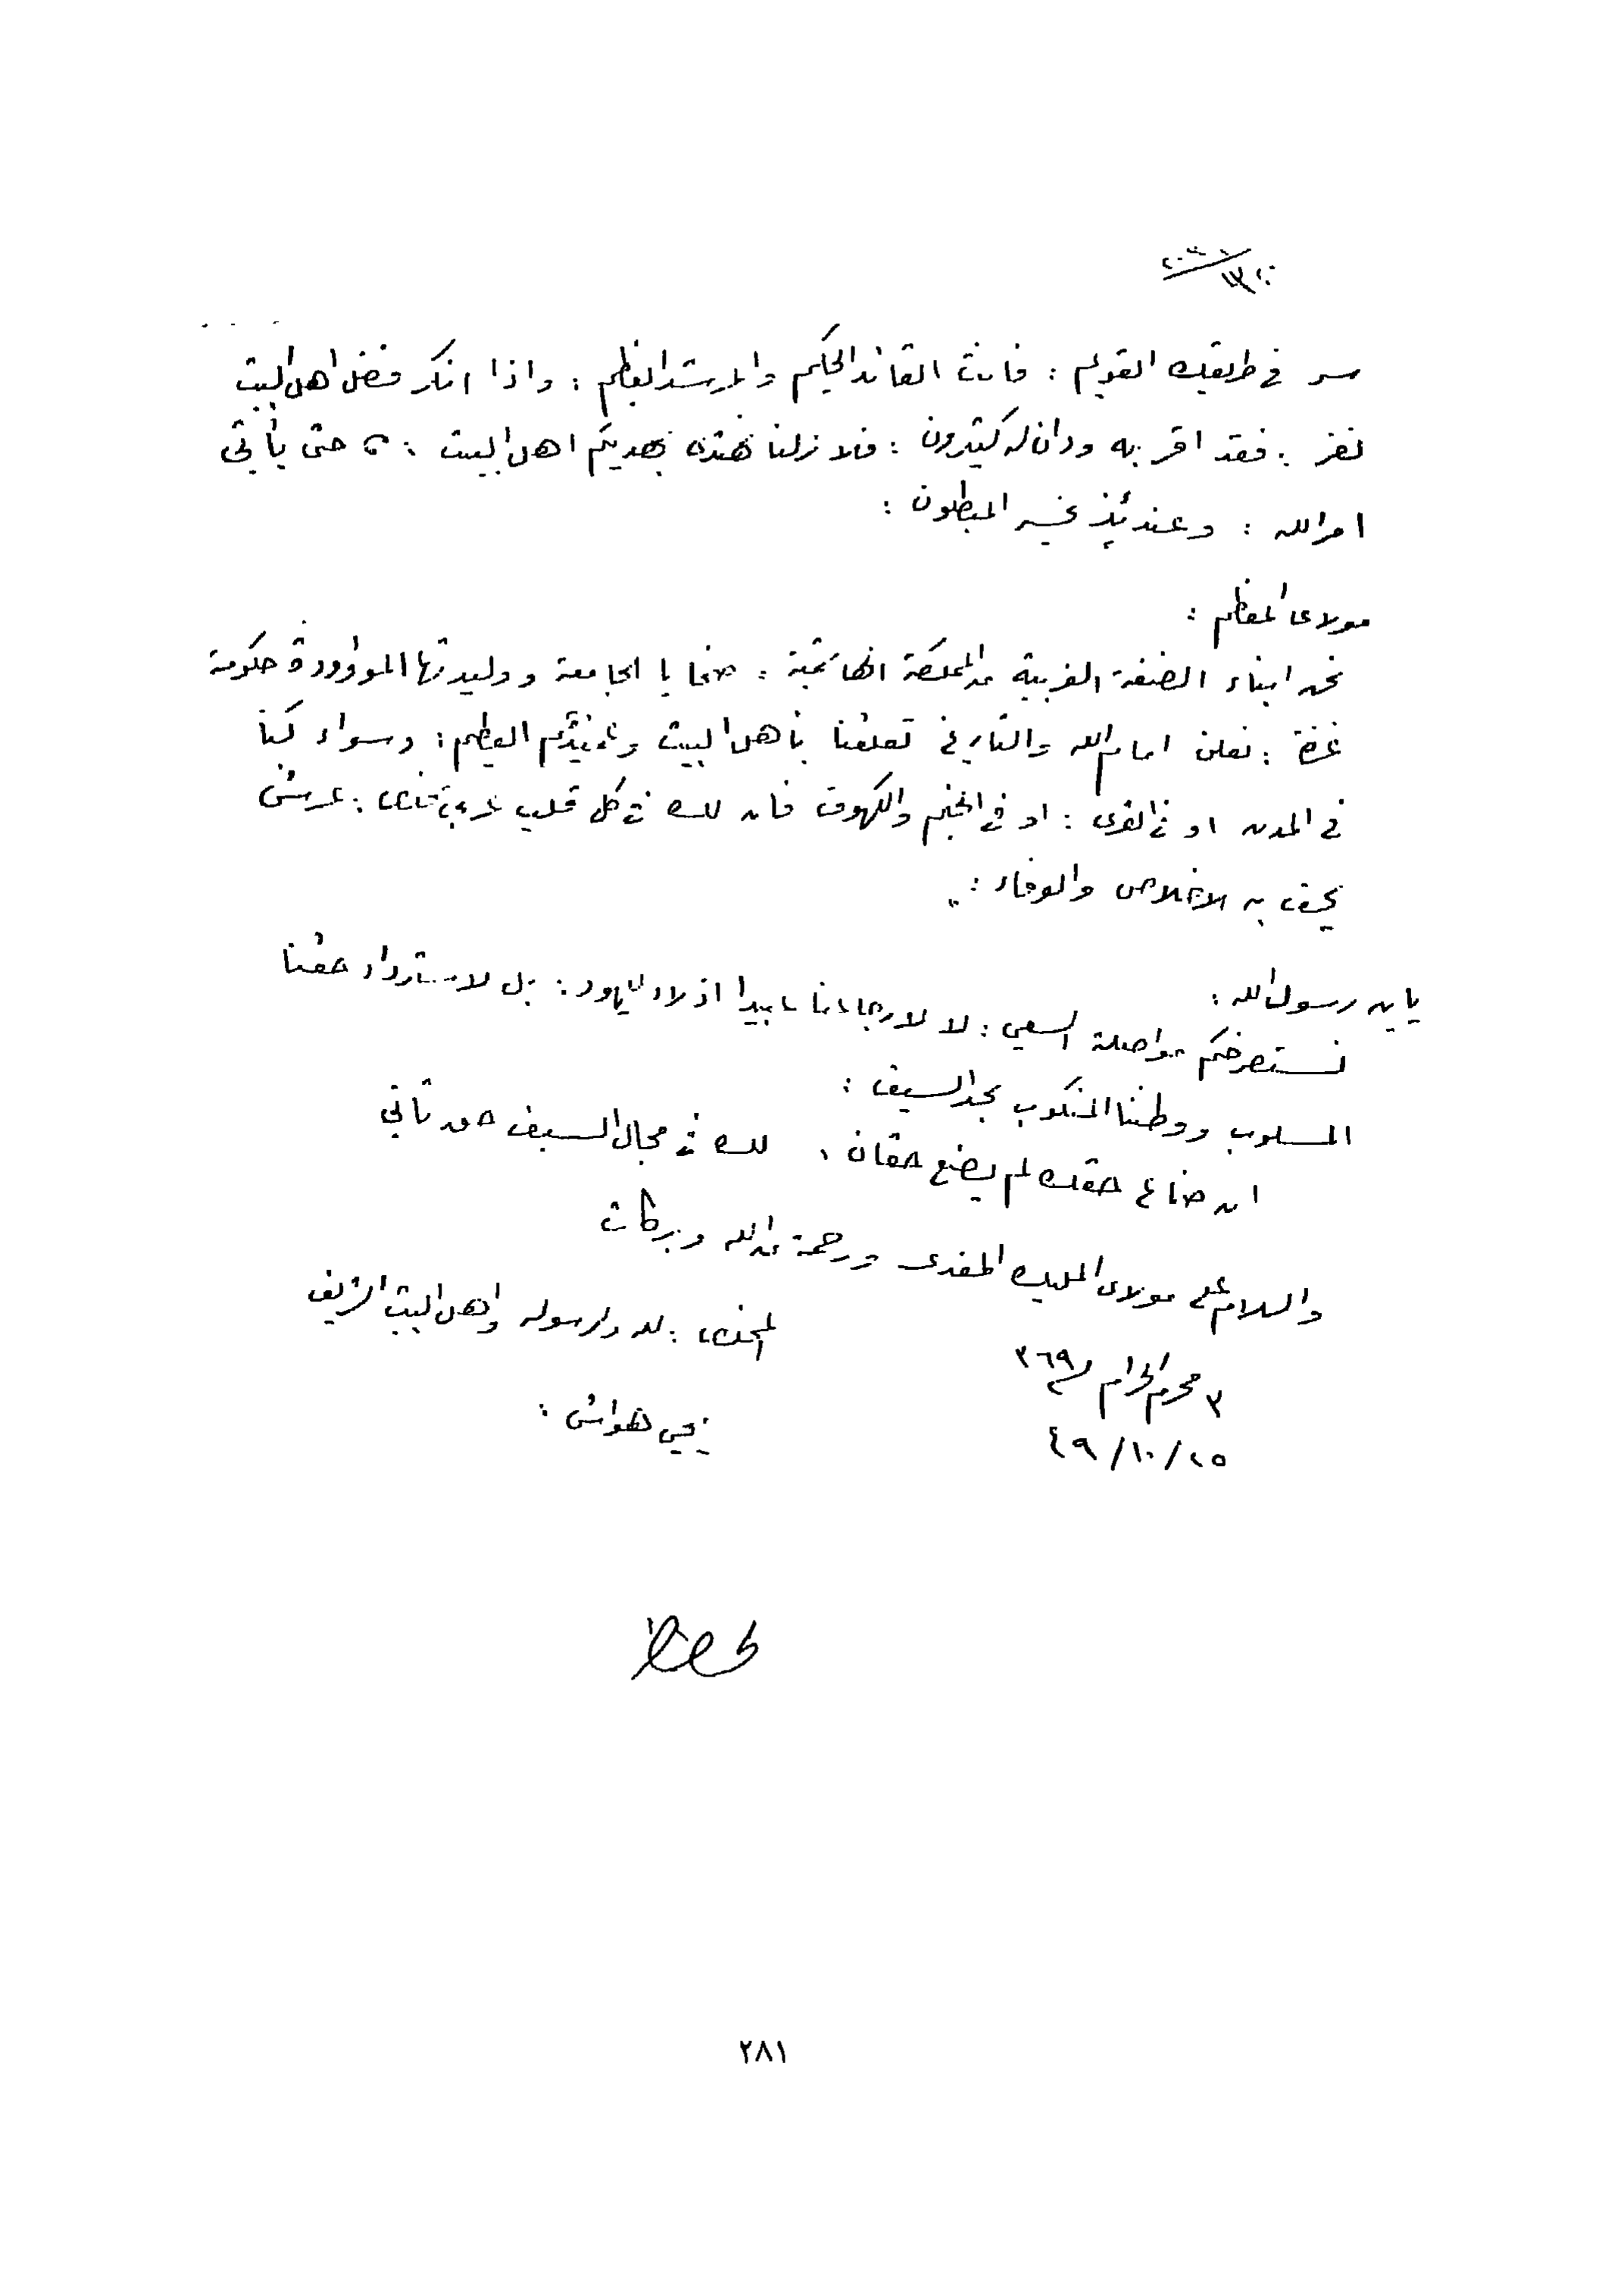 سر في طريقك القويم : فانت القائد الحكيم والمرشد العظيم : واذا انكر فضل اهل البيت
نفر : فقد اقر به ودان له كثيرون : فلا زلنا نهتدي بهديكم اهل البيت : حتى يأتي
امر الله : وعندئذ يخسر المبطلون :
مولاي المعظم :
نحن ابناء الضفة الغربية من المملكة الهاشمية : ضحايا الجامعة ووليدتها الموؤودة حكومة
غزة : نعلن امام الله والتاريخ تعلقنا بأهل البيت وعميدهم العظيم : وسواء كنا
في المدن او في القرى : او في الخيم والكهوف فان لك في كل قلب عربي : عرش
يحف به الاخلاص والوفاء :
يا بن رسول الله :
نستصرخكم مواصلة السعي : لا لارجاعنا عبيدا اذلاء لليهود : بل لاسترداد حقنا
المسلوب ووطننا المنكوب بحد السيف :
ان ضاع حقك لم يضع حقان ، لك في مجال السيف حق ثاني
والسلام على مولاي المليك المفدى ورحمة من الله وبركات
المخلص : لله ولرسوله واهل البيت الشريف
٣ محرم الحرام سنة ٣٦٩
يحيى هواش :
٤٩/١٠/٢٥
٢٨١